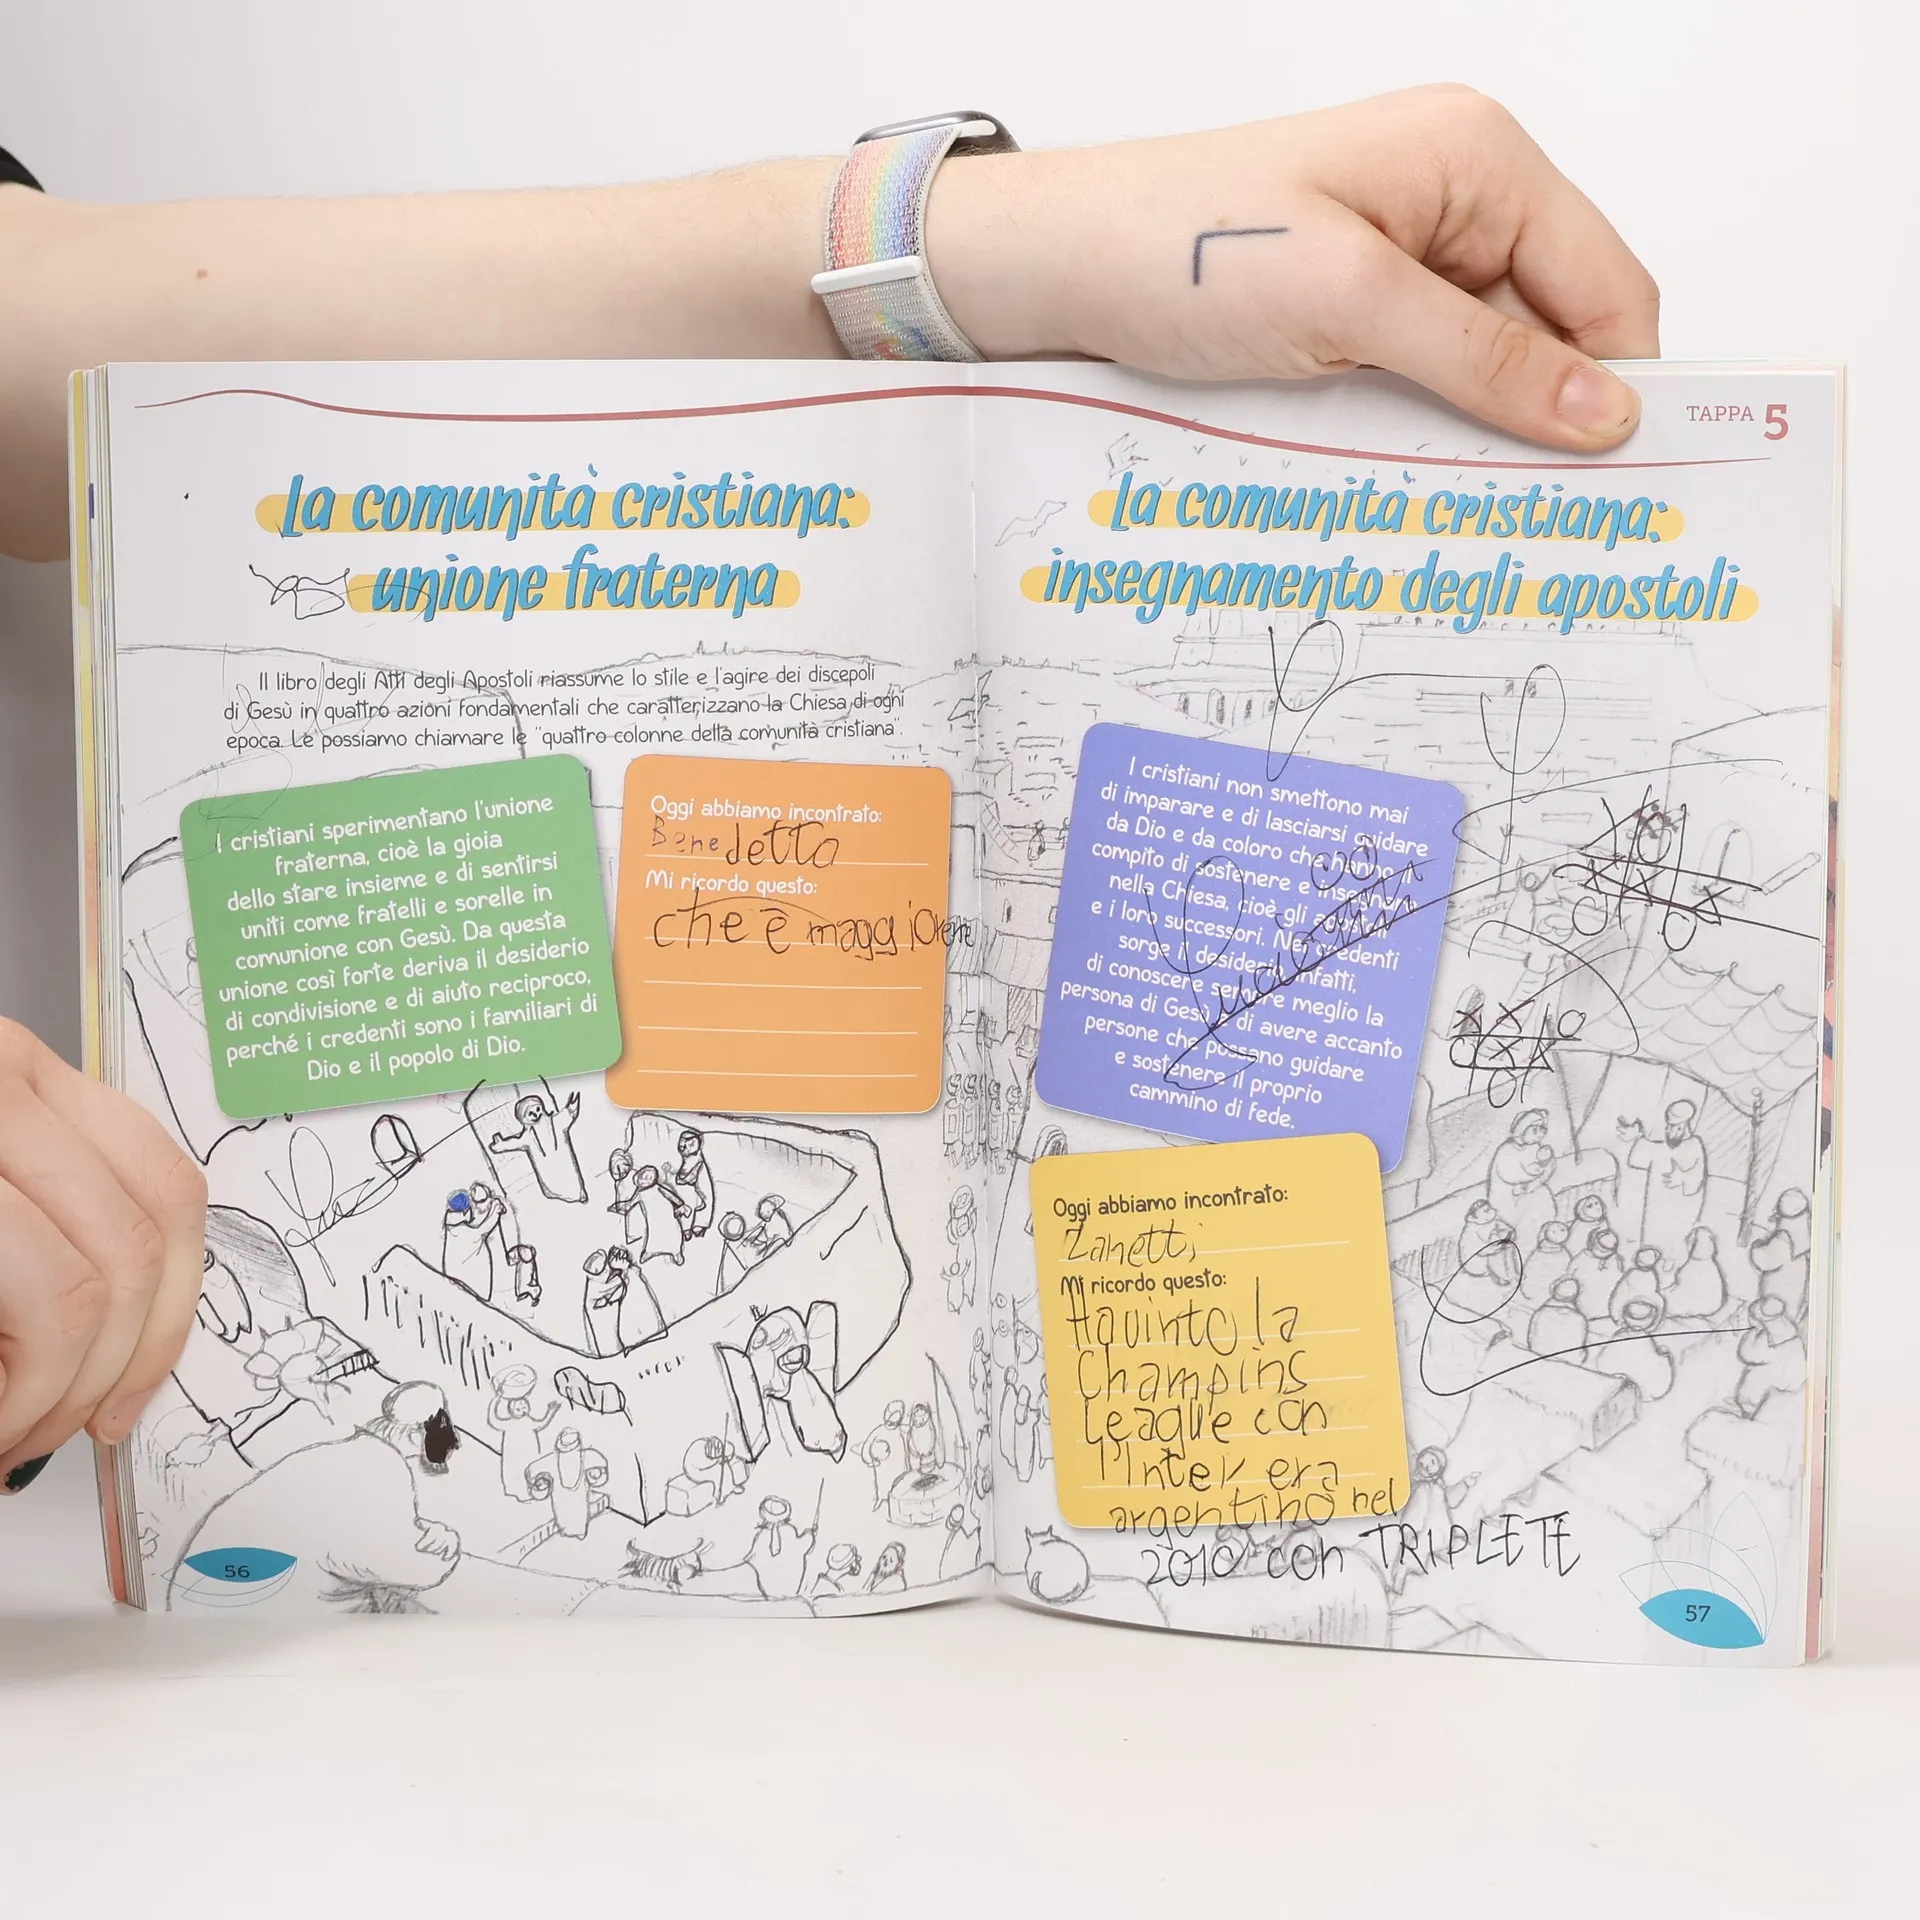 La comunità cristiana:
unione fraterna
Il libro degli Atti degli Apostoli riassume lo stile e l'agire dei discepoli
di Gesù in quattro azioni fondamentali che caratterizzano la Chiesa di ogni
epoca. Le possiamo chiamare le "quattro colonne della comunità cristiana".
I cristiani sperimentano l'unione
fraterna, cioè la gioia
dello stare insieme e di sentirsi
uniti come fratelli e sorelle in
comunione con Gesù. Da questa
unione così forte deriva il desiderio
di condivisione e di aiuto reciproco,
perché i credenti sono i familiari di
Dio e il popolo di Dio.
Oggi abbiamo incontrato:
Benedetta
Mi ricordo questo:
che è maggiorene
56
TAPPA 5
La comunità cristiana:
insegnamento degli apostoli
I cristiani non smettono mai
di imparare e di lasciarsi guidare
da Dio e da coloro che hanno il
compito di sostenere e insegnare
nella Chiesa, cioè gli apostoli
e i loro successori. Nei credenti
sorge il desiderio, infatti,
di conoscere sempre meglio la
persona di Gesù e di avere accanto
persone che possano guidare
e sostenere il proprio
cammino di fede.
Oggi abbiamo incontrato:
Zanetti
Mi ricordo questo:
Ha vinto la
Champins
League con
l'Inter era
argentino nel
2010 con TRIPLETE
57